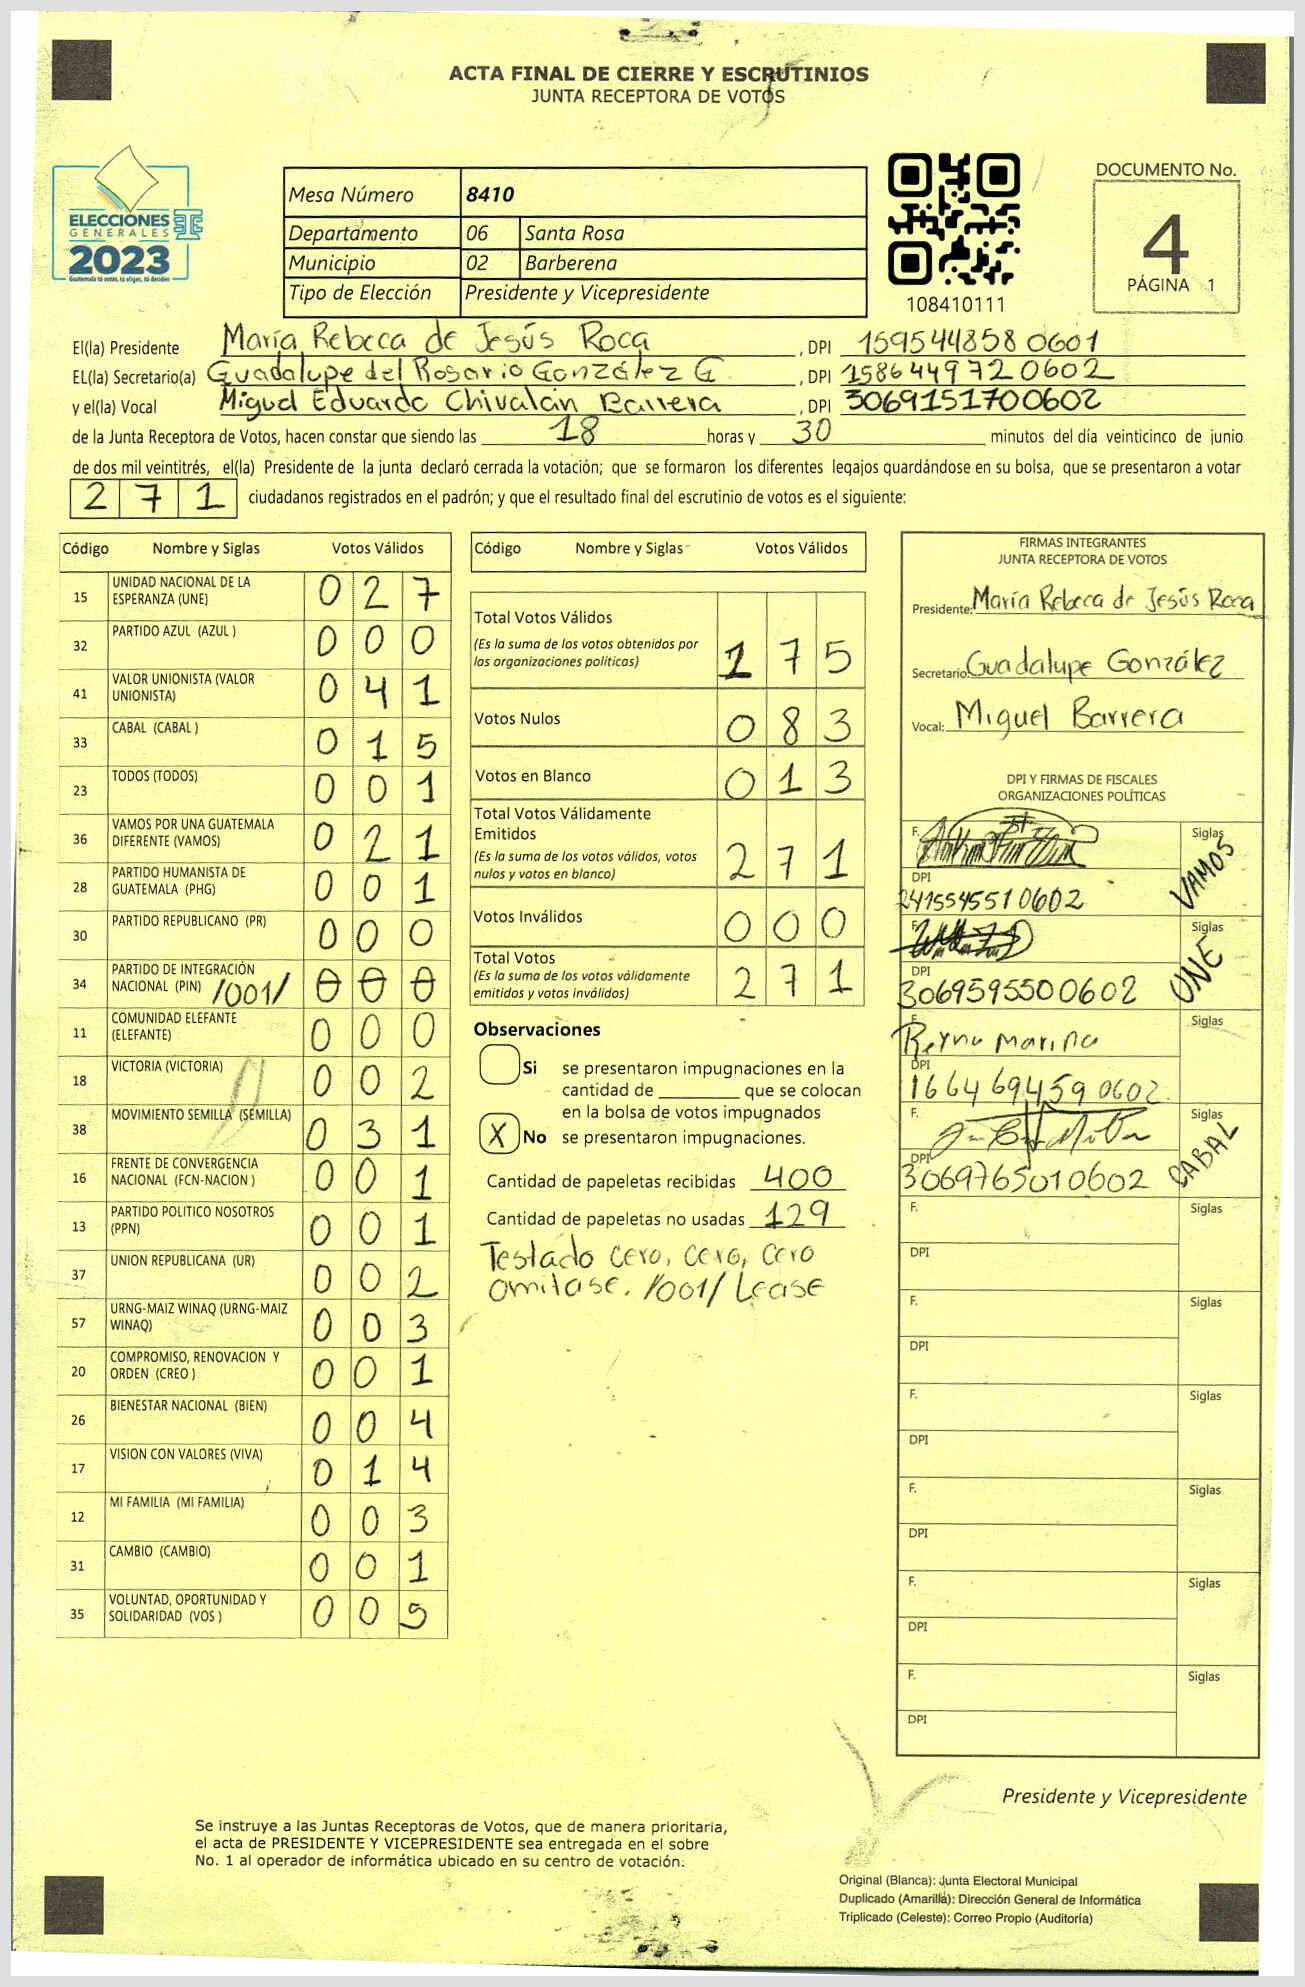 ACTA FINAL DE CIERRE Y ESCRUTINIOS
JUNTA RECEPTORA DE VOTOS
ELECCIONES
GENERALES
2023
Guatemala tú votas, tú eliges, tú decides
Mesa Número 8410
Departamento 06 Santa Rosa
Municipio 02 Barberena
Tipo de Elección Presidente y Vicepresidente
108410111
DOCUMENTO No.
4
PÁGINA 1
El(la) Presidente María Rebeca de Jesús Roca , DPI 1595448580601
EL(la) Secretario(a) Guadalupe del Rosario González G. , DPI 1586449720602
y el(la) Vocal Miguel Eduardo Chivalán Barrera , DPI 3069151700602
de la Junta Receptora de Votos, hacen constar que siendo las 18 horas y 30 minutos del día veinticinco de junio
de dos mil veintitrés, el(la) Presidente de la junta declaró cerrada la votación; que se formaron los diferentes legajos quardándose en su bolsa, que se presentaron a votar
271 ciudadanos registrados en el padrón; y que el resultado final del escrutinio de votos es el siguiente:
Código Nombre y Siglas Votos Válidos
15 UNIDAD NACIONAL DE LA ESPERANZA (UNE) 0 2 7
32 PARTIDO AZUL (AZUL ) 0 0 0
41 VALOR UNIONISTA (VALOR UNIONISTA) 0 4 1
33 CABAL (CABAL ) 0 1 5
23 TODOS (TODOS) 0 0 1
36 VAMOS POR UNA GUATEMALA DIFERENTE (VAMOS) 0 2 1
28 PARTIDO HUMANISTA DE GUATEMALA (PHG) 0 0 1
30 PARTIDO REPUBLICANO (PR) 0 0 0
34 PARTIDO DE INTEGRACIÓN NACIONAL (PIN) /001/ 0 0 0
11 COMUNIDAD ELEFANTE (ELEFANTE) 0 0 0
18 VICTORIA (VICTORIA) 0 0 2
38 MOVIMIENTO SEMILLA (SEMILLA) 0 3 1
16 FRENTE DE CONVERGENCIA NACIONAL (FCN-NACION ) 0 0 1
13 PARTIDO POLITICO NOSOTROS (PPN) 0 0 1
37 UNION REPUBLICANA (UR) 0 0 2
57 URNG-MAIZ WINAQ (URNG-MAIZ WINAQ) 0 0 3
20 COMPROMISO, RENOVACION Y ORDEN (CREO ) 0 0 1
26 BIENESTAR NACIONAL (BIEN) 0 0 4
17 VISION CON VALORES (VIVA) 0 1 4
12 MI FAMILIA (MI FAMILIA) 0 0 3
31 CAMBIO (CAMBIO) 0 0 1
35 VOLUNTAD, OPORTUNIDAD Y SOLIDARIDAD (VOS ) 0 0 5
Código Nombre y Siglas Votos Válidos
Total Votos Válidos
(Es la suma de los votos obtenidos por
las organizaciones políticas) 1 7 5
Votos Nulos 0 8 3
Votos en Blanco 0 1 3
Total Votos Válidamente
Emitidos
(Es la suma de los votos válidos, votos
nulos y votos en blanco) 2 7 1
Votos Inválidos 0 0 0
Total Votos
(Es la suma de los votos válidamente
emitidos y votos inválidos) 2 7 1
Observaciones
Si se presentaron impugnaciones en la
cantidad de ________ que se colocan
en la bolsa de votos impugnados
X No se presentaron impugnaciones.
Cantidad de papeletas recibidas 400
Cantidad de papeletas no usadas 129
Testado cero, cero, cero
omitase. /001/ Lease
FIRMAS INTEGRANTES
JUNTA RECEPTORA DE VOTOS
Presidente: María Rebeca de Jesús Roca
Secretario: Guadalupe González
Vocal: Miguel Barrera
DPI Y FIRMAS DE FISCALES
ORGANIZACIONES POLÍTICAS
F. Siglas VAMOS
DPI
2415545510602
F. Siglas UNE
DPI
3069595500602
F. Reyna Marina Siglas
DPI
1664694590602
F. Siglas CABAL
DPI
3069765010602
F. Siglas
DPI
F. Siglas
DPI
F. Siglas
DPI
F. Siglas
DPI
F. Siglas
DPI
F. Siglas
DPI
Presidente y Vicepresidente
Se instruye a las Juntas Receptoras de Votos, que de manera prioritaria,
el acta de PRESIDENTE Y VICEPRESIDENTE sea entregada en el sobre
No. 1 al operador de informática ubicado en su centro de votación.
Original (Blanca): Junta Electoral Municipal
Duplicado (Amarilla): Dirección General de Informática
Triplicado (Celeste): Correo Propio (Auditoría)